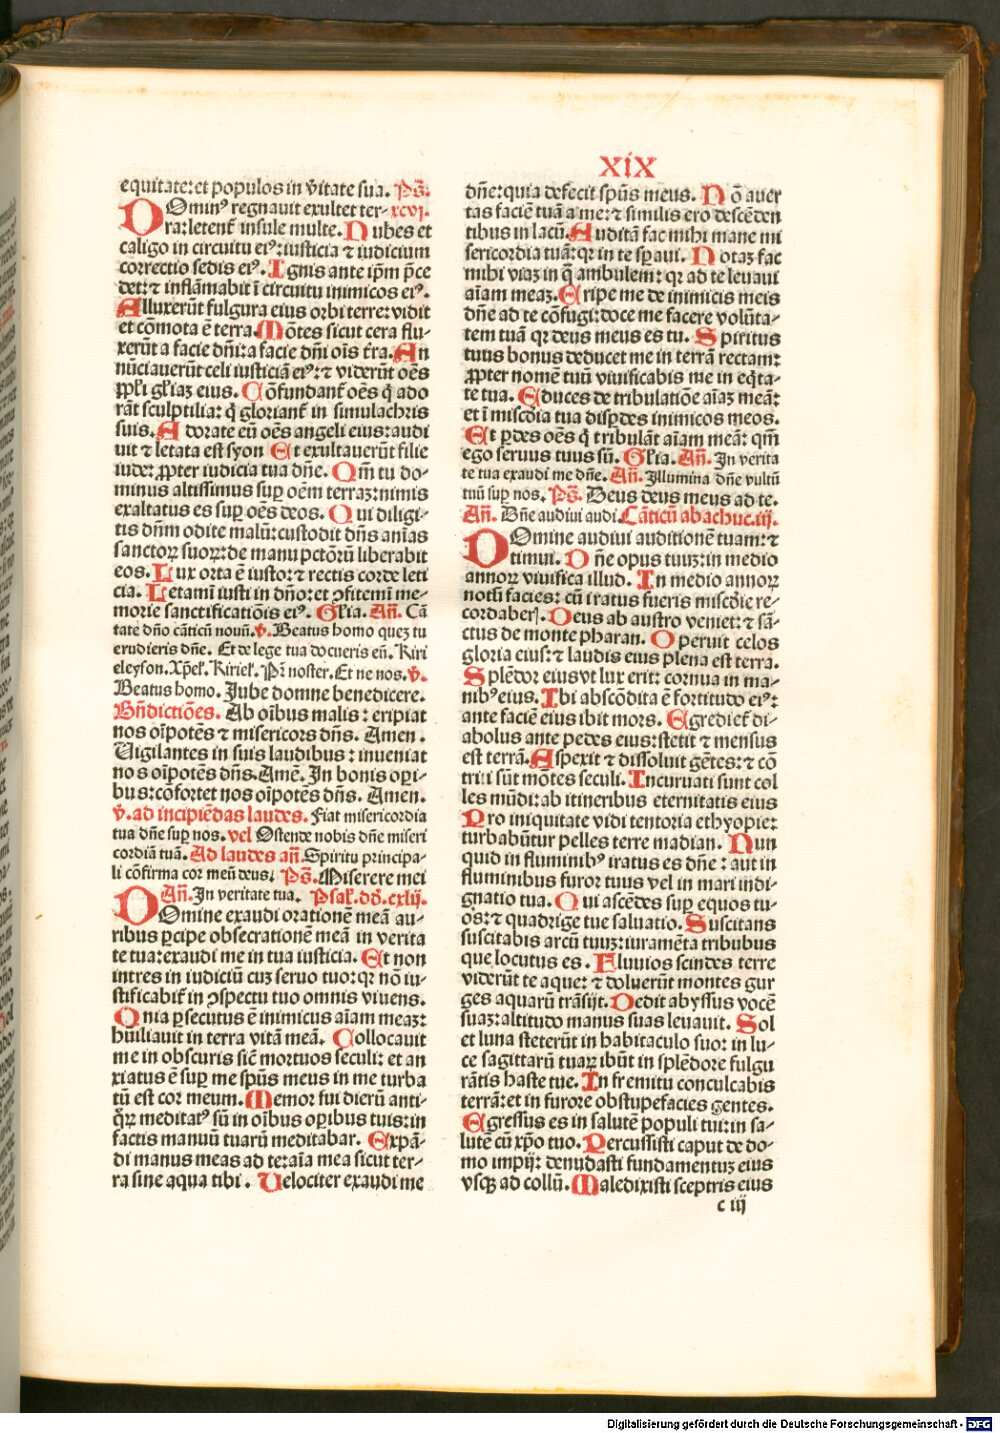 XIX
equitate: et populos in v̄itate sua. Ps̄.
DOminꝰ regnauit exultet ter- xcvj.
ra: letent᷑ insule multe. Nubes et
caligo in circuitu eiꝰ: iusticia ⁊ iudicium
correctio sedis eiꝰ. Ignis ante ip̄m p̄ce
det: ⁊ inflāmabit ī circuitu inimicos eiꝰ.
Alluxerūt fulgura eius orbi terre: vidit
et cōmota ē terra. Mōtes sicut cera flu-
xerūt a facie dn̄i: a facie dn̄i oīs t̄ra. An
nūciauerūt celi iusticiā eiꝰ: ⁊ viderūt oēs
ppl̄i gl̄iaꝫ eius. Cōfundant᷑ oēs q̄ ado
rāt sculptilia: q̄ gloriant᷑ in simulachris
suis. Adorate eū oēs angeli eius: audi
uit ⁊ letata est syon Et exultauerūt filie
iude: ꝓpter iudicia tua dn̄e. Qm̄ tu do-
minus altissimus suꝑ oēm terraꝫ: nimis
exaltatus es suꝑ oēs deos. Qui diligi-
tis dn̄m odite malū: custodit dn̄s aīas
sanctoꝝ suoꝝ: de manu pctōrū liberabit
eos. Lux orta ē iusto: ⁊ rectis corde leti
cia. Letamī iusti in dn̄o: et ꝯfitemī me-
morie sanctificatiōis eiꝰ. Gl̄ia. Añ. Cā
tate dn̄o cāticū nouū. v̄. Beatus homo queꝫ tu
erudieris dn̄e. Et de lege tua docueris eū. Kiri
eleyson. Xp̄el̄. Kiriel̄. Pr̄ noster. Et ne nos. v̄.
Beatus homo. Jube domne benedicere.
Bn̄dictiōes. Ab oībus malis: eripiat
nos oīpotēs ⁊ misericors dn̄s. Amen.
Uigilantes in suis laudibus: inueniat
nos oīpotēs dn̄s. Amē. In bonis oꝑi-
bus: cōfortet nos oīpotēs dn̄s. Amen.
v̄. ad incipiēdas laudes. Fiat misericordia
tua dn̄e suꝑ nos. vel Ostende nobis dn̄e miseri
cordiā tuā. Ad laudes añ. Spiritu principa-
li cōfirma cor meū deus. Ps̄. Miserere mei
Añ. In veritate tua. Psal̄. dd̄. cxlij.
DOmine exaudi orationē meā au-
ribus ꝑcipe obsecrationē meā in verita
te tua: exaudi me in tua iusticia. Et non
intres in iudiciū cuꝫ seruo tuo: qꝛ nō iu-
stificabit᷑ in ꝯspectu tuo omnis viuens.
Qnia ꝑsecutus ē inimicus aīam meaꝫ:
hūiliauit in terra vitā meā. Collocauit
me in obscuris sic̄ mortuos seculi: et an
xiatus ē suꝑ me sp̄us meus in me turba
tū est cor meum. Memor fui dierū anti-
qͦꝝ meditatꝰ sū in oībus oꝑibus tuis: in
factis manuū tuarū meditabar. Expā-
di manus meas ad te: aīa mea sicut ter-
ra sine aqua tibi. Velociter exaudi me
dn̄e: quia defecit sp̄us meus. Nō auer
tas faciē tuā a me: ⁊ similis ero descēden
tibus in lacū. Auditā fac mihi mane mi
sericordia tuā: qꝛ in te sꝑaui. Notaꝫ fac
mihi viaꝫ in q̄ ambulem: qꝛ ad te leuaui
aīam meaꝫ. Eripe me de inimicis meis
dn̄e ad te cōfugi: doce me facere volūta-
tem tuā qꝛ deus meus es tu. Spiritus
tuus bonus deducet me in terrā rectam:
ꝓpter nomē tuū viuificabis me in eq̄ta-
te tua. Educes de tribulatiōe aīaꝫ meā:
et ī misc̄dia tua disꝑdes inimicos meos.
Et ꝑdes oēs q̄ tribulāt aīam meā: qm̄
ego seruus tuus sū. Gl̄ia. Añ. In verita
te tua exaudi me dn̄e. Añ. Illumina dn̄e vultū
tuū suꝑ nos. Ps̄. Deus deus meus ad te.
Añ. Dn̄e audiui audi. Cāticū abachuc. iij.
DOmine audiui auditionē tuam: ⁊
timui. Dn̄e opus tuuꝫ: in medio
annoꝝ viuifica illud. In medio annoꝝ
notū facies: cū iratus fueris misc̄die re-
cordaberꝭ. Deus ab austro veniet: ⁊ sā-
ctus de monte pharan. Operuit celos
gloria eius: ⁊ laudis eius plena est terra.
Splēdor eius vt lux erit: cornua in ma-
nibꝰ eius. Ibi abscōdita ē fortitudo eiꝰ:
ante faciē eius ibit mors. Egrediet᷑ di-
abolus ante pedes eius: stetit ⁊ mensus
est terrā. Aspexit ⁊ dissoluit gētes: ⁊ cō
triti sūt mōtes seculi. Incuruati sunt col
les mūdi: ab itineribus eternitatis eius
Pro iniquitate vidi tentoria ethyopie:
turbabūtur pelles terre madian. Nun
quid in fluminibꝰ iratus es dn̄e: aut in
fluminibus furor tuus vel in mari indi-
gnatio tua. Qui ascēdes suꝑ equos tu-
os: ⁊ quadrige tue saluatio. Suscitans
suscitabis arcū tuuꝫ: iuramēta tribubus
que locutus es. Fluuios scindes terre
viderūt te aque: ⁊ doluerūt montes gur
ges aquarū trāsijt. Dedit abyssus vocē
suaꝫ: altitudo manus suas leuauit. Sol
et luna steterūt in habitaculo suo: in lu-
ce sagittarū tuaꝝ ibūt in splēdore fulgu
rātis haste tue. In fremitu conculcabis
terrā: et in furore obstupefacies gentes.
Egressus es in salutē populi tui: in sa-
lutē cū xp̄o tuo. Percussisti caput de do-
mo impij: denudasti fundamentuꝫ eius
vsqꝫ ad collū. Maledixisti sceptris eius
c iij
Digitalisierung gefördert durch die Deutsche Forschungsgemeinschaft - DFG